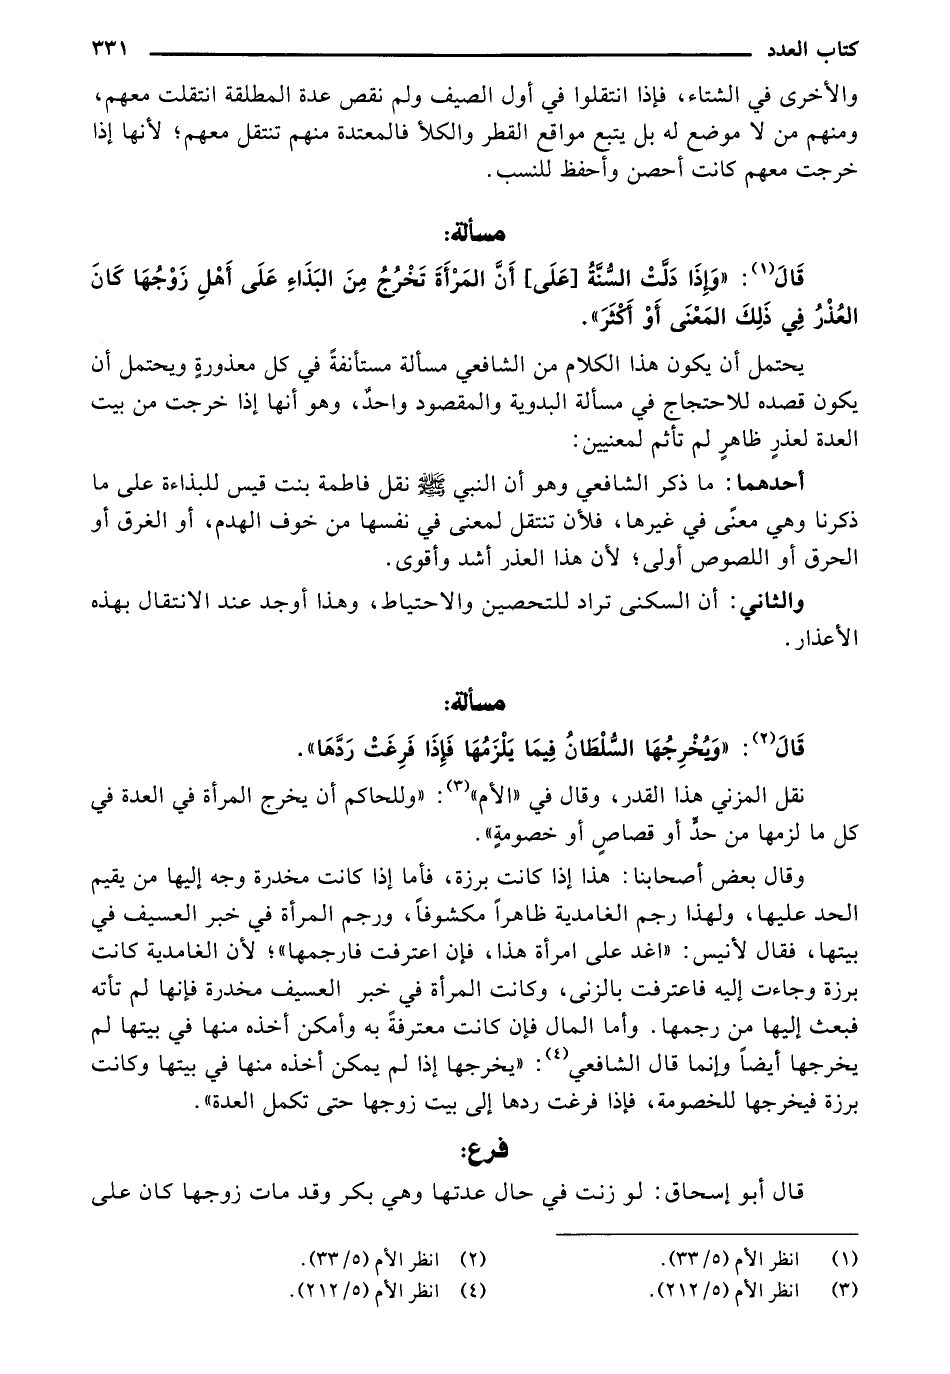 كتاب العدد ٣٣١
والأخرى في الشتاء، فإذا انتقلوا في أول الصيف ولم نقص عدة المطلقة انتقلت معهم،
ومنهم من لا موضع له بل يتبع مواقع القطر والكلأ فالمعتدة منهم تنتقل معهم؛ لأنها إذا
خرجت معهم كانت أحصن وأحفظ للنسب.
مسألة:
قَالَ(١): «وَإِذَا دَلَّتْ السُّنَّةُ [عَلَى] أَنَّ المَرْأَةَ تَخْرُجُ مِنَ البَذَاءِ عَلَى أَهْلِ زَوْجُهَا كَانَ
العُذْرُ فِي ذَلِكَ المَعْنَى أَوْ أَكْثَرَ».
يحتمل أن يكون هذا الكلام من الشافعي مسألة مستأنفةً في كل معذورةٍ ويحتمل أن
يكون قصده للاحتجاج في مسألة البدوية والمقصود واحدٌ، وهو أنها إذا خرجت من بيت
العدة لعذرٍ ظاهرٍ لم تأثم لمعنيين:
أحدهما: ما ذكر الشافعي وهو أن النبي ﷺ نقل فاطمة بنت قيس للبذاءة على ما
ذكرنا وهي معنًى في غيرها، فلأن تنتقل لمعنى في نفسها من خوف الهدم، أو الغرق أو
الحرق أو اللصوص أولى؛ لأن هذا العذر أشد وأقوى.
والثاني: أن السكنى تراد للتحصين والاحتياط، وهذا أوجد عند الانتقال بهذه
الأعذار.
مسألة:
قَالَ(٢): «وَيُخْرِجُهَا السُّلْطَانُ فِيمَا يَلْزَمُهَا فَإِذَا فَرِغَتْ رَدَّهَا».
نقل المزني هذا القدر، وقال في «الأم»(٣): «وللحاكم أن يخرج المرأة في العدة في
كل ما لزمها من حدٍّ أو قصاصٍ أو خصومةٍ».
وقال بعض أصحابنا: هذا إذا كانت برزة، فأما إذا كانت مخدرة وجه إليها من يقيم
الحد عليها، ولهذا رجم الغامدية ظاهراً مكشوفاً، ورجم المرأة في خبر العسيف في
بيتها، فقال لأنيس: «اغد على امرأة هذا، فإن اعترفت فارجمها»؛ لأن الغامدية كانت
برزة وجاءت إليه فاعترفت بالزنى، وكانت المرأة في خبر العسيف مخدرة فإنها لم تأته
فبعث إليها من رجمها. وأما المال فإن كانت معترفةً به وأمكن أخذه منها في بيتها لم
يخرجها أيضاً وإنما قال الشافعي(٤): «يخرجها إذا لم يمكن أخذه منها في بيتها وكانت
برزة فيخرجها للخصومة، فإذا فرغت ردها إلى بيت زوجها حتى تكمل العدة».
فرع:
قال أبو إسحاق: لو زنت في حال عدتها وهي بكر وقد مات زوجها كان على
(١) انظر الأم (٥/ ٣٣). (٢) انظر الأم (٥/ ٣٣).
(٣) انظر الأم (٥/ ٢١٢). (٤) انظر الأم (٥/ ٢١٢).